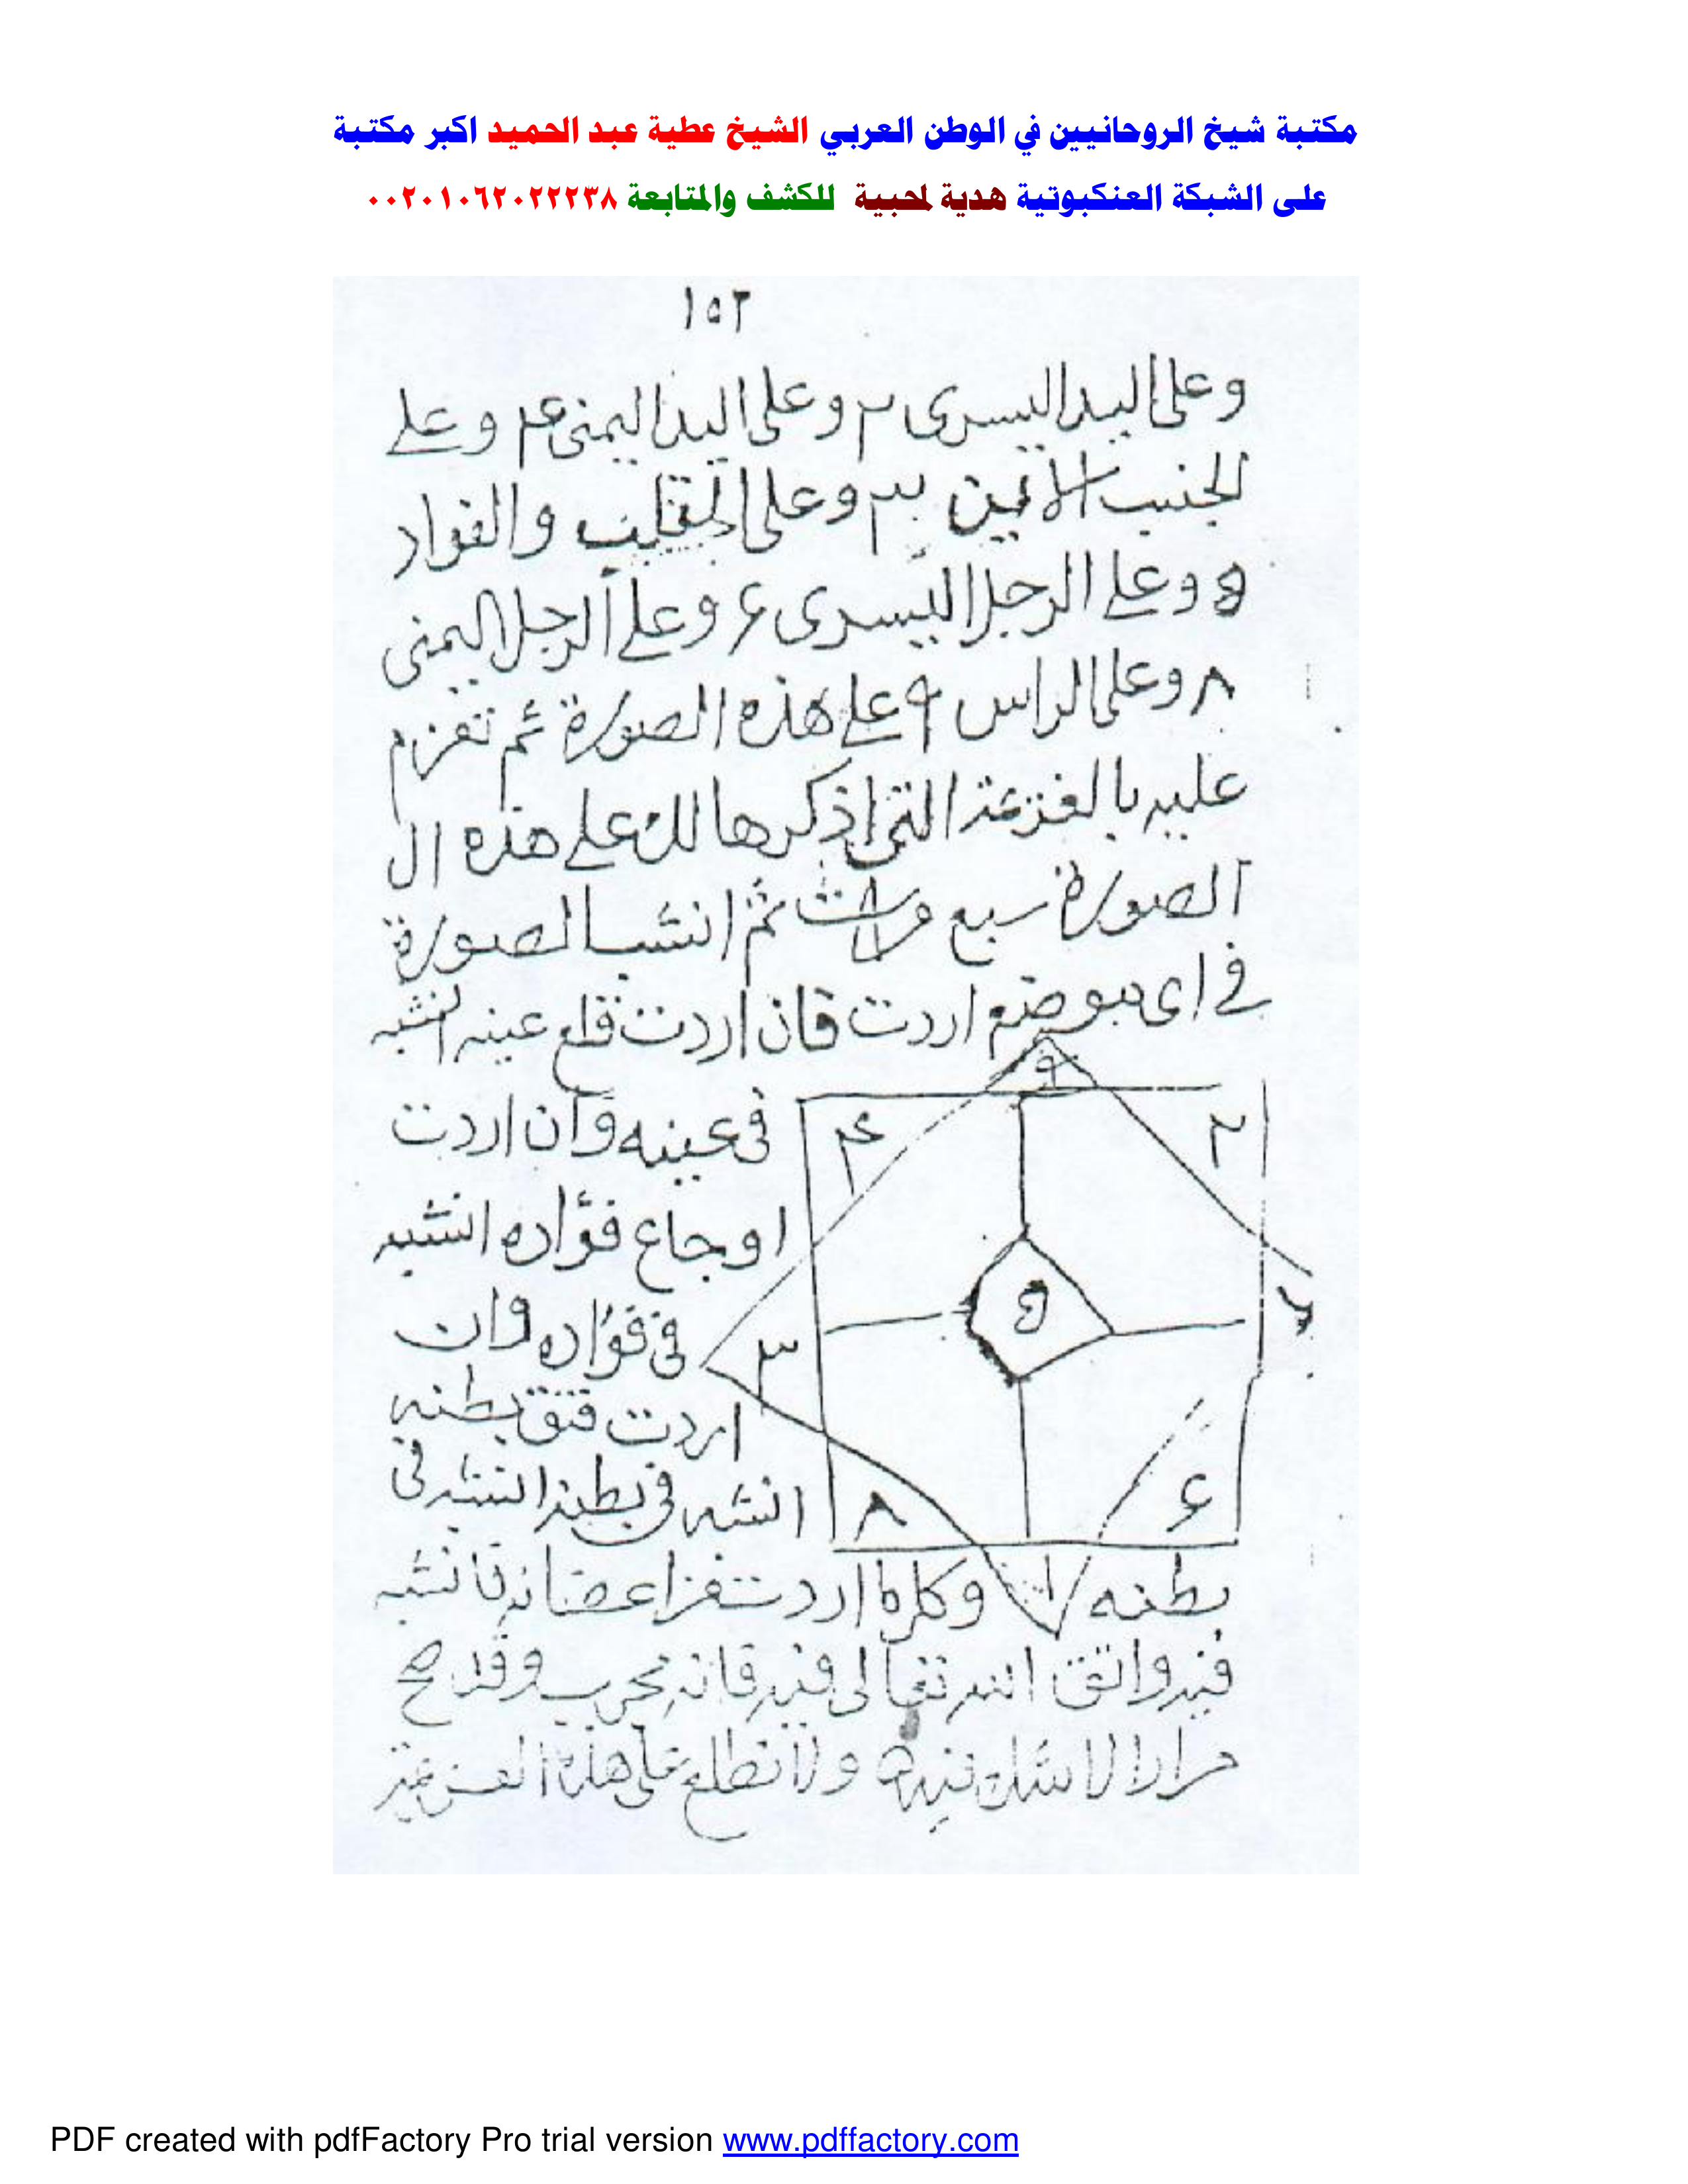 مكتبة شيخ الروحانيين في الوطن العربي الشيخ عطية عبد الحميد اكبر مكتبة
على الشبكة العنكبوتية هدية لمحبية للكشف والمتابعة ٠٠٢٠١٠٦٢٠٢٢٢٣٨
١٥٢
وعلى اليد اليسرى ٢ وعلى اليد اليمنى ٤ وعلى
الجنب الايمن ٣ وعلى القلب والفواد
٥ وعلى الرجل اليسرى ۶ وعلى الرجل اليمنى
٨ وعلى الراس ٩ على هذه الصورة ثم تعزم
عليه بالعزيمة التى اذكرها لك على هذه ال
الصورة سبع مرات ثم انشب الصورة
فى اى موضع اردت فان اردت قلع عينه انشبه
٩
فى عينه وان اردت
٤
٢
اوجاع فؤاده انشبه
فى فؤاده وان
٣
٥
٧
اردت فتق بطنه
انشبه فى بطنه انشبه فى
٨
۶
بطنه
١
وكلما اردت من اعضائه فانشبه
فيه واتق الله تعالى فيه فانه مجرب وقد صح
مرارا لا شك فيه ولا تطلع على هذه العزيمة
PDF created with pdfFactory Pro trial version www.pdffactory.com